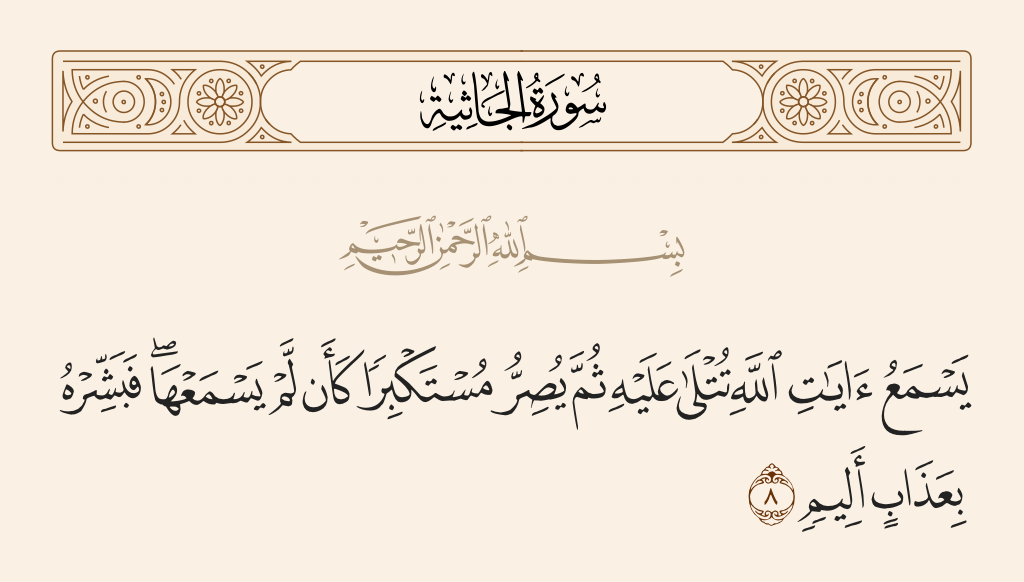 سُورَةُ الجَاثِيةِ
بِسْمِ ٱللَّهِ ٱلرَّحْمَٰنِ ٱلرَّحِيمِ
يَسْمَعُ ءَايَٰتِ ٱللَّهِ تُتْلَىٰ عَلَيْهِ ثُمَّ يُصِرُّ مُسْتَكْبِرًا كَأَن لَّمْ يَسْمَعْهَا ۖ فَبَشِّرْهُ
بِعَذَابٍ أَلِيمٍ ٨